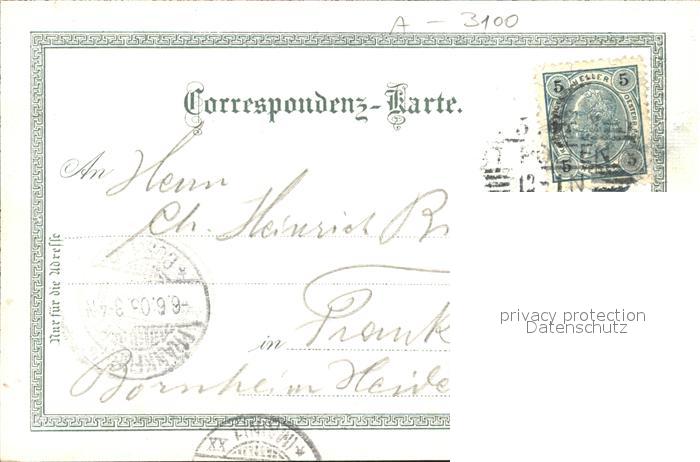 A - 3100
5 HELLER 5
Correspondenz-Karte.
ST. PÖLTEN
5 5
12-1N
An Herrn
Ch. Heinrich
Nur für die Adresse
6.6.03 3-4N
FRANKF
in Frank
Bornheim Heide
privacy protection
Datenschutz
XX